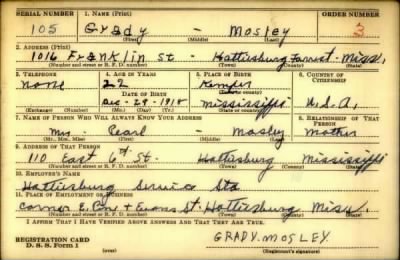 SERIAL NUMBER 1. NAME (Print) ORDER NUMBER
105 Grady - Mosley 3
(First) (Middle) (Last)
2. ADDRESS (Print)
1016 Franklin St - Hattiesburg Forrest - Miss.
(Number and street or R. F. D. number) (Town) (County) (State)
3. TELEPHONE 4. AGE IN YEARS 5. PLACE OF BIRTH 6. COUNTRY OF CITIZENSHIP
none 22 Kemper
DATE OF BIRTH (Town or county)
Dec - 29 - 1918 Mississippi U.S.A.
(Exchange) (Number) (Mo.) (Day) (Yr.) (State or country)
7. NAME OF PERSON WHO WILL ALWAYS KNOW YOUR ADDRESS 8. RELATIONSHIP OF THAT PERSON
Mrs. Pearl - Mosley Mother
(Mr., Mrs., Miss) (First) (Middle) (Last)
9. ADDRESS OF THAT PERSON
110 East 6th St. Hattiesburg Mississippi
(Number and street or R. F. D. number) (Town) (County) (State)
10. EMPLOYER'S NAME
Hattiesburg Service Sta
11. PLACE OF EMPLOYMENT OR BUSINESS
Corner E. & Evans St. Hattiesburg Miss.
(Number and street or R. F. D. number) (Town) (County) (State)
I AFFIRM THAT I HAVE VERIFIED ABOVE ANSWERS AND THAT THEY ARE TRUE.
REGISTRATION CARD
D. S. S. Form 1 (over) GRADY. MOSLEY.
(Registrant's signature)